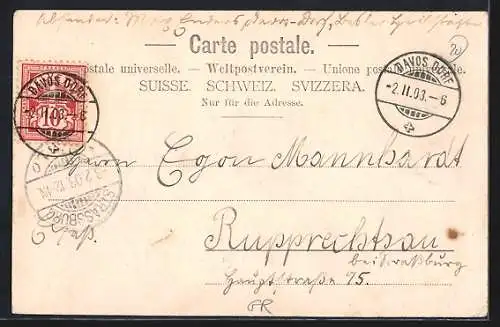 Absender: Max Enders, Davos-Dorf, Basler Heilstätte
Carte postale.
Postale universelle. — Weltpostverein. — Unione postale universale.
SUISSE. SCHWEIZ. SVIZZERA.
Nur für die Adresse.
DAVOS DORF
-2.II.03.-6
DAVOS DORF
10
STRASSBURG
Herrn Egon Mannhardt
Rupprechtsau
bei Straßburg
Hauptstraße 75.
GR